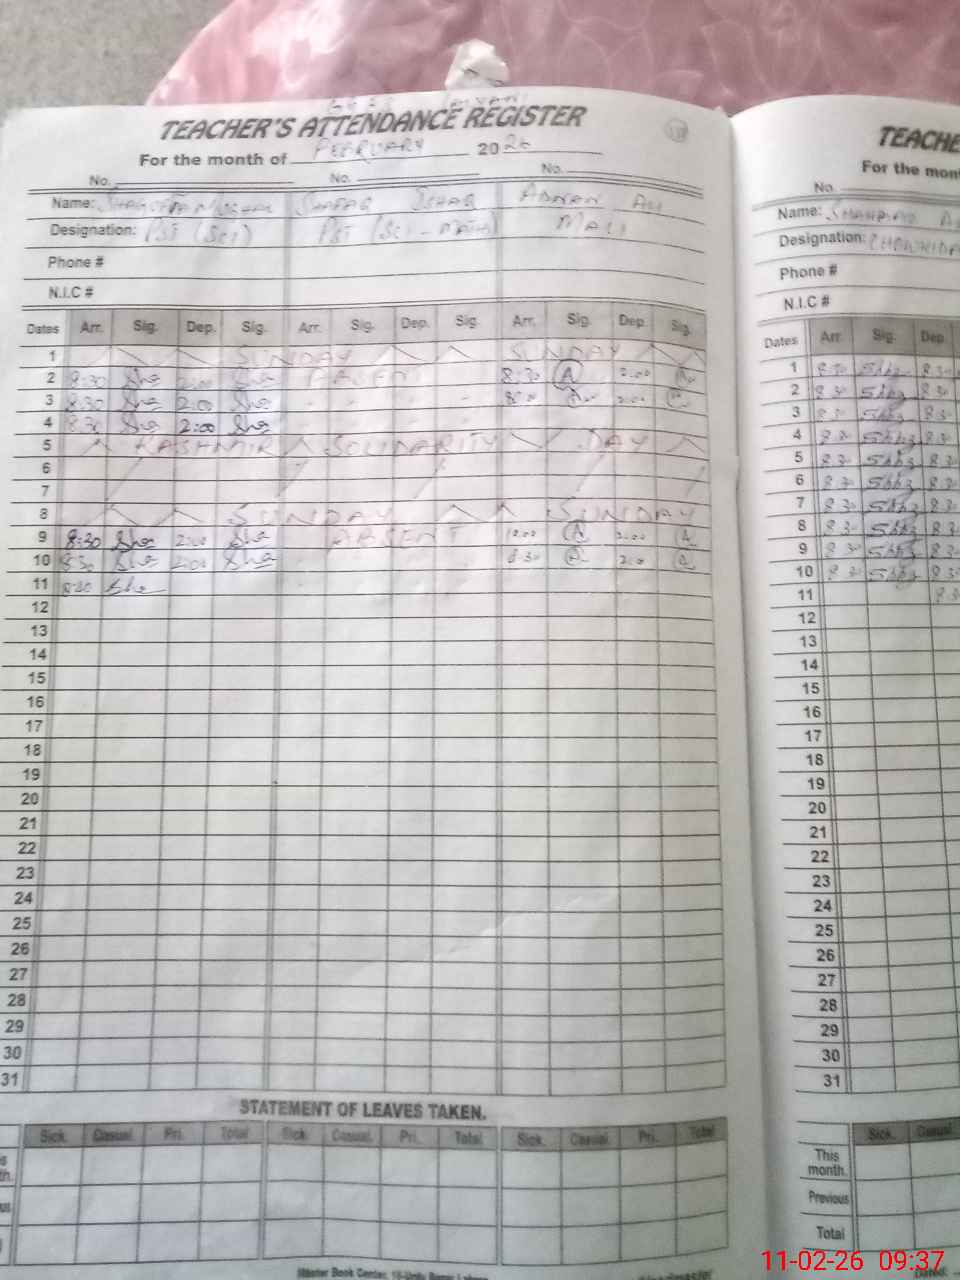 TEACHER'S ATTENDANCE REGISTER
For the month of FEBRUARY 2026
No. No. No.
Name: SHAGUFTA MUGHAL SHAFAQ ISHAQ ADNAN ALI
Designation: PST (SCI) PST (SCI-MATH) MALI
Phone #
N.I.C #
Dates Arr. Sig. Dep. Sig. Arr. Sig. Dep. Sig. Arr. Sig. Dep. Sig.
1 SUNDAY SUNDAY
2 8:30 Sha 2:00 Sha ABSENT 8:30 A 2:00
3 8:30 Sha 2:00 Sha 2:00
4 8:30 Sha 2:00 Sha
5 KASHMIR SOLIDARITY DAY
6
7
8 SUNDAY SUNDAY
9 8:30 Sha 2:00 Sha ABSENT A 2:00 A
10 8:30 Sha 2:00 Sha 8:30 2:00
11 8:30 Sha
12
13
14
15
16
17
18
19
20
21
22
23
24
25
26
27
28
29
30
31
STATEMENT OF LEAVES TAKEN.
Sick. Casual. Pri. Total Sick. Casual. Pri. Total Sick. Casual. Pri. Total
TEACHE
For the mon
No.
Name:
Designation:
Phone #
N.I.C #
Dates Arr. Sig. Dep.
1 8:30 8:30
2 8:30 8:30
3 8:30 8:30
4 8:30 8:30
5 8:30 8:30
6 8:30 8:30
7 8:30 8:30
8 8:30 8:30
9 8:30 8:30
10 8:30 8:30
11 8:30
12
13
14
15
16
17
18
19
20
21
22
23
24
25
26
27
28
29
30
31
Sick. Casual.
This
month.
Previous
Total
11-02-26 09:37